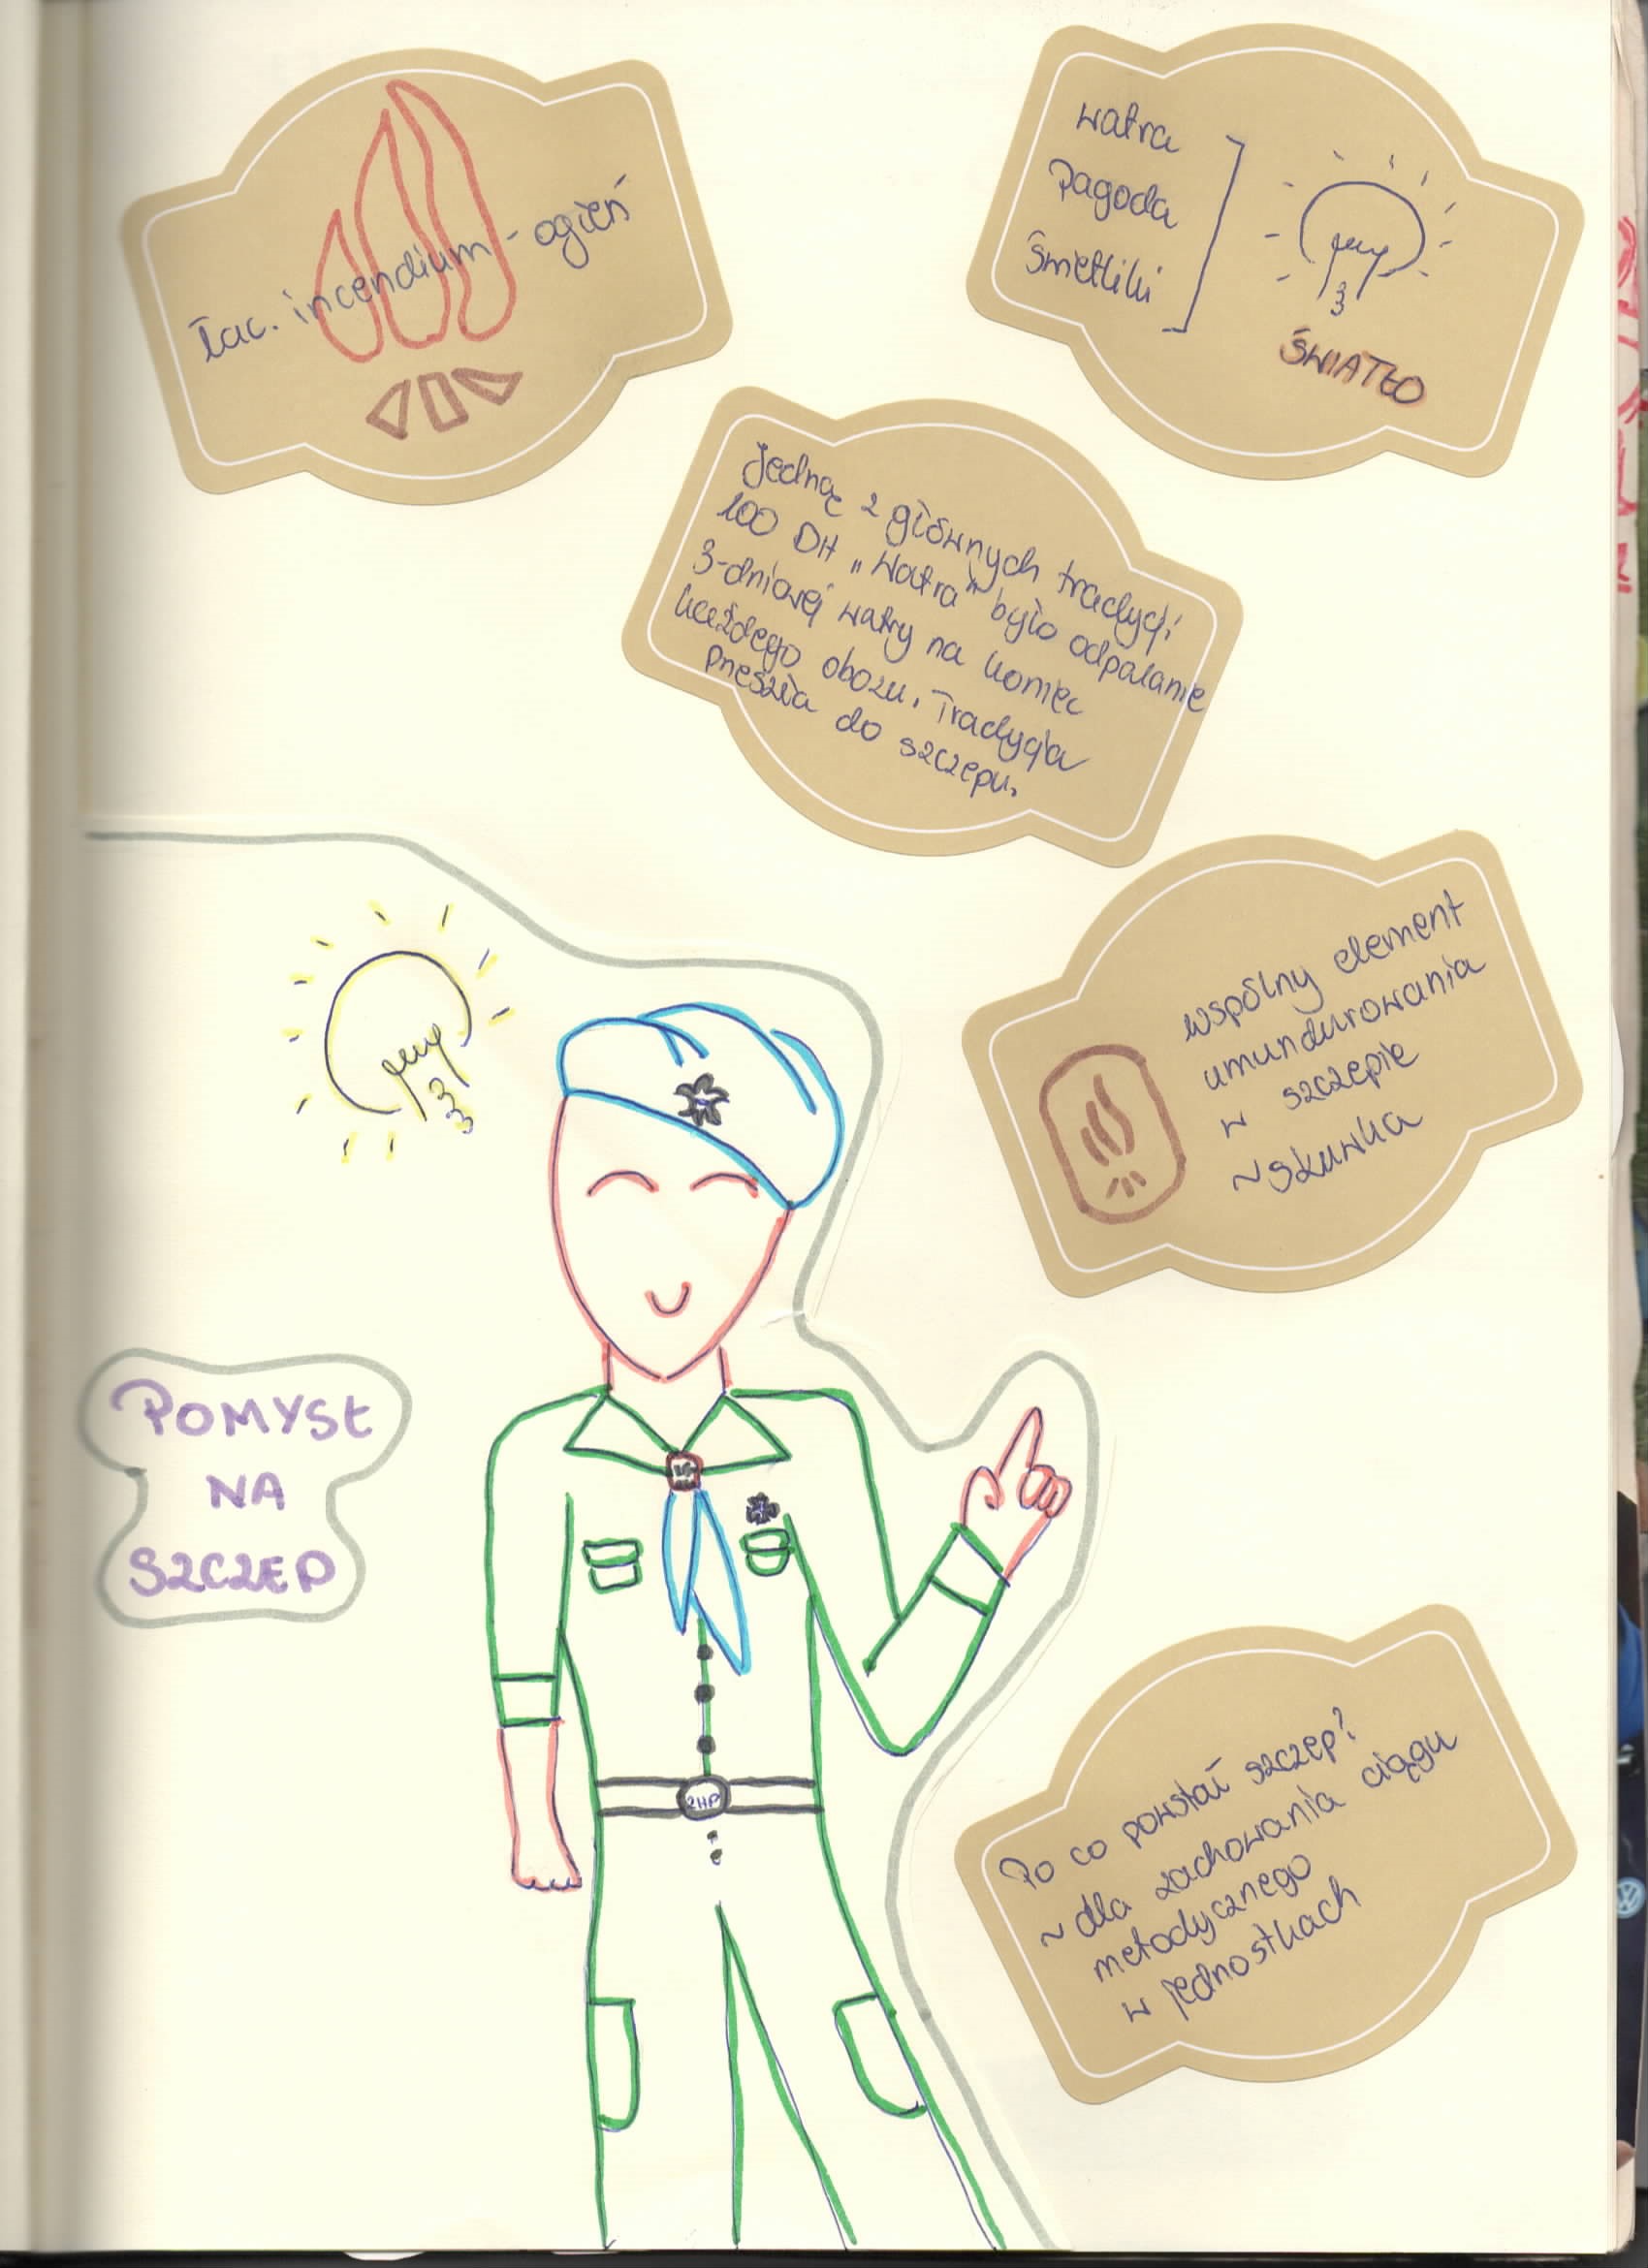 łac. incendium - ogień
watra
Pagoda
Świetliki
ŚWIATŁO
Jedną z głównych tradycji
100 DH „Watra" było odpalanie
3-dniowej watry na koniec
każdego obozu. Tradycja
przeszła do szczepu.
wspólny element
umundurowania
w szczepie
~ suwka
POMYSŁ
NA
SZCZEP
ZHP
Po co powstał szczep?
~ dla zachowania ciągu
metodycznego
w jednostkach